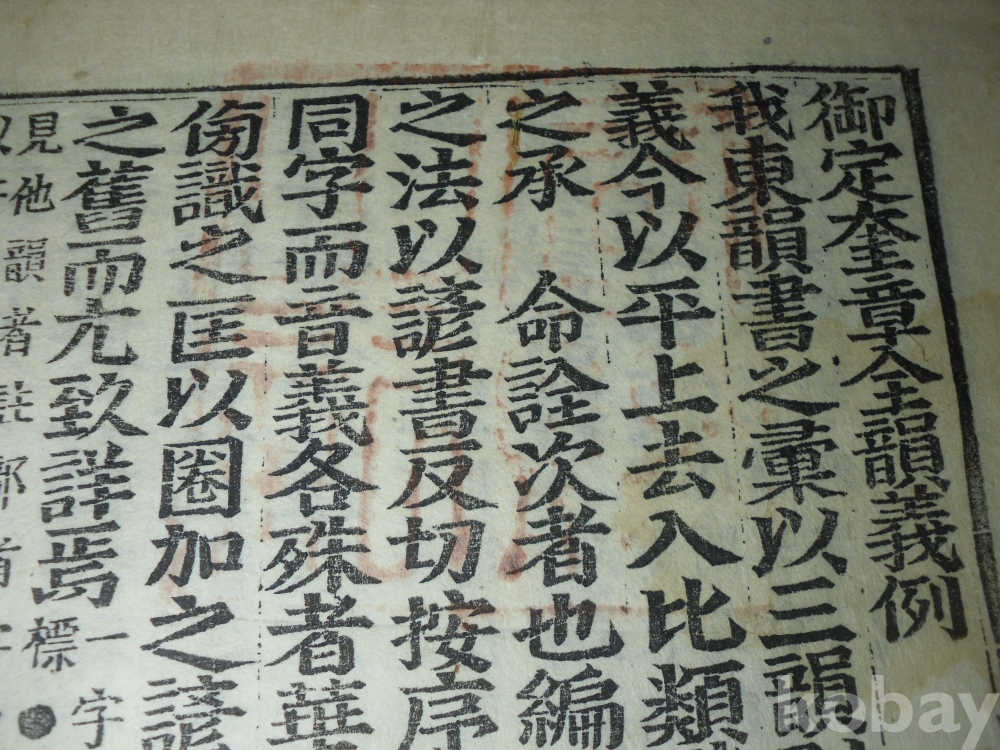 御定奎章全韻義例
我東韻書之彙以三韻
義今以平上去入比類
之承 命詮次者也編
之法以諺書反切按序
同字而音義各殊者華
傍識之匡以圈加之諺
之舊而尤致詳焉標一字
見他韻者註
kobay